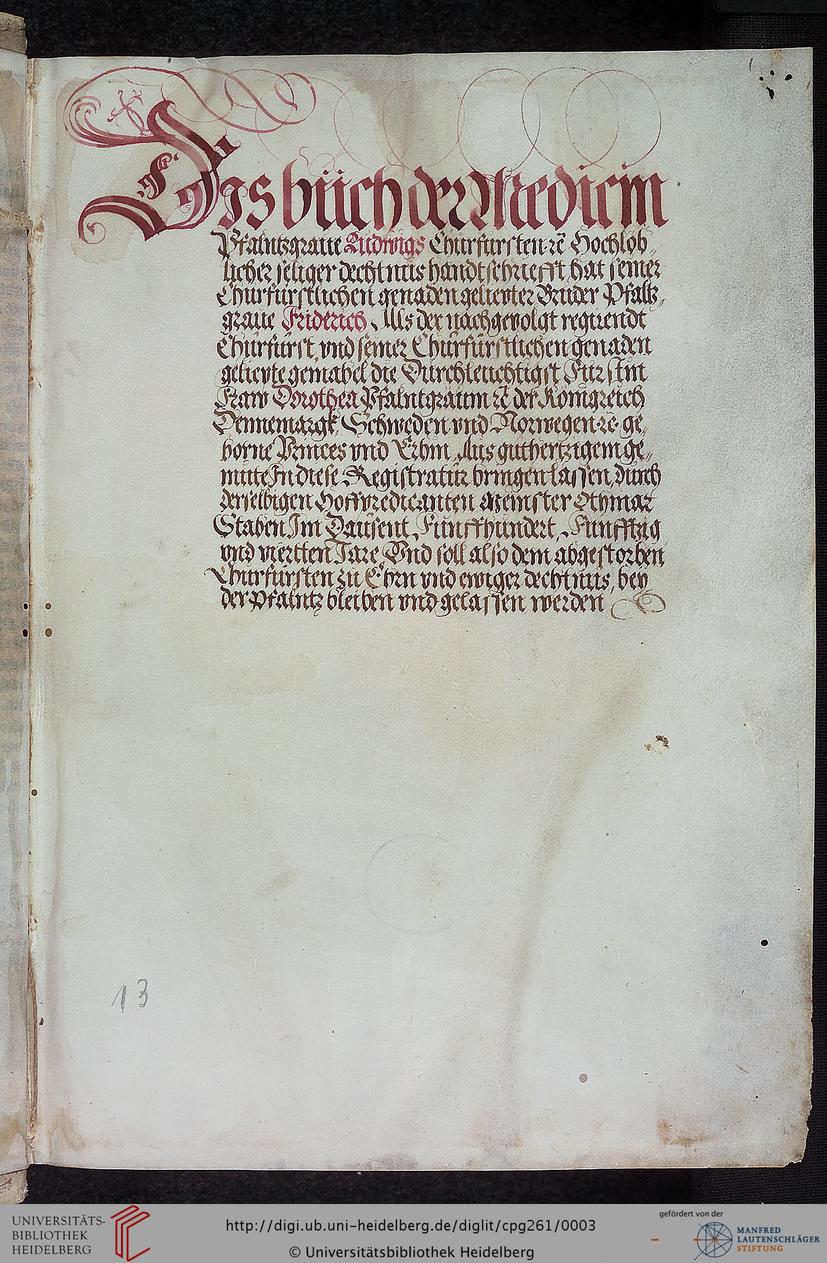 Dis büch der Medicin
Pfalntzgraue Ludwigs Churfursten ꝛc̄ Hochlob„
licher seliger dechtnus handtschriefft, hat seiner
Churfürstlichen genaden geliepter Bruder Pfaltz„
graue Friderich, Als der nachgevolgt regirendt
Chürfürst, vnd seiner Chürfürstlichen genaden
geliepte gemahel die Durchleuchtigst Furstin
Fraw Dorothea Pfalntgräuin ꝛc̄ der Konigreich
Dennemargk, Schweden vnd Norwegen ꝛc ge„
borne Princes vnd Erbin, Aus guthertzigem ge„
müte In diese Registratür bringen lassen, durch
derselbigen Hoffpredicanten Meinster Othmar
Staben Im Dausent, Funffhundert, Funfftzig
vnd viertten Jare, Vnd soll also dem abgestorben
Churfursten zu Ehrn vnd ewiger dechtnus, bey
der Pfalntz bleiben vnd gelassen werden
13
UNIVERSITÄTS-
BIBLIOTHEK
HEIDELBERG
http://digi.ub.uni-heidelberg.de/diglit/cpg261/0003
© Universitätsbibliothek Heidelberg
gefördert von der
MANFRED
LAUTENSCHLÄGER
STIFTUNG